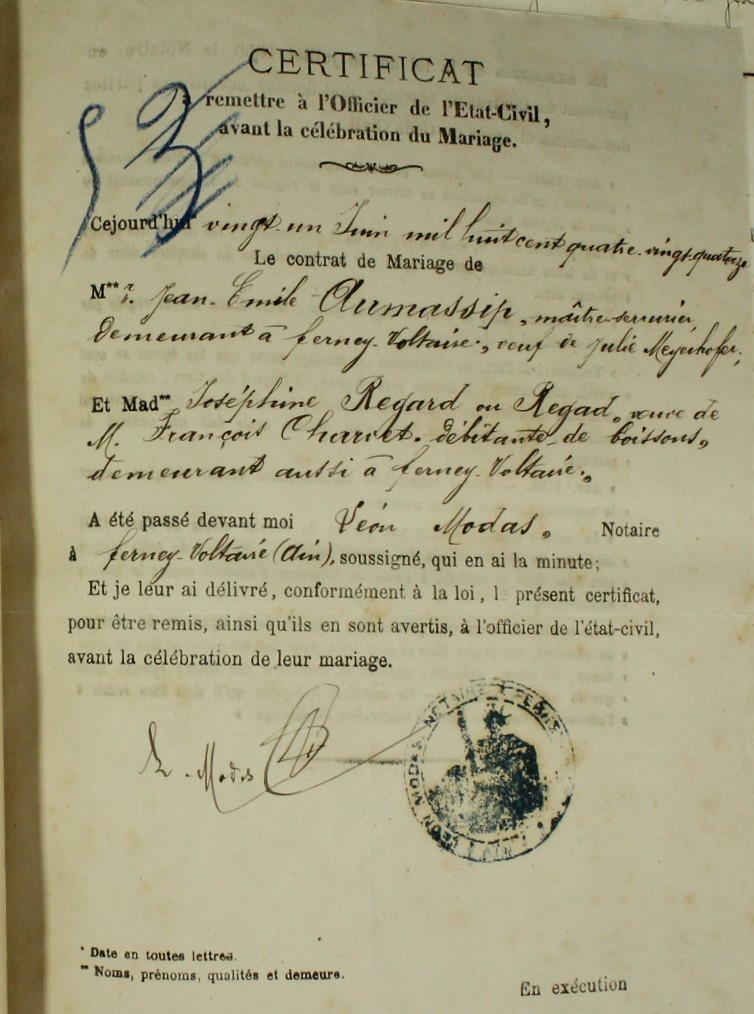 CERTIFICAT
à remettre à l'Officier de l'Etat-Civil,
avant la célébration du Mariage.
53
Cejourd'hui vingt-un Juin mil huit cent quatre-vingt-quatorze
Le contrat de Mariage de
M** r. Jean-Emile Aumassip, maître-serrurier,
demeurant à ferney-Voltaire, veuf de Julie Meyerhofer;
Et Mad** Joséphine Regard ou Regad, veuve de
M. François Charvet, débitante de boissons,
demeurant aussi à ferney-Voltaire.
A été passé devant moi Léon Modas, Notaire
à ferney-Voltaire (Ain), soussigné, qui en ai la minute;
Et je leur ai délivré, conformément à la loi, le présent certificat,
pour être remis, ainsi qu'ils en sont avertis, à l'officier de l'état-civil,
avant la célébration de leur mariage.
L. Modas
LÉON MODAS NOTAIRE À FERNEY
(AIN)
* Date en toutes lettres.
** Noms, prénoms, qualités et demeure.
En exécution